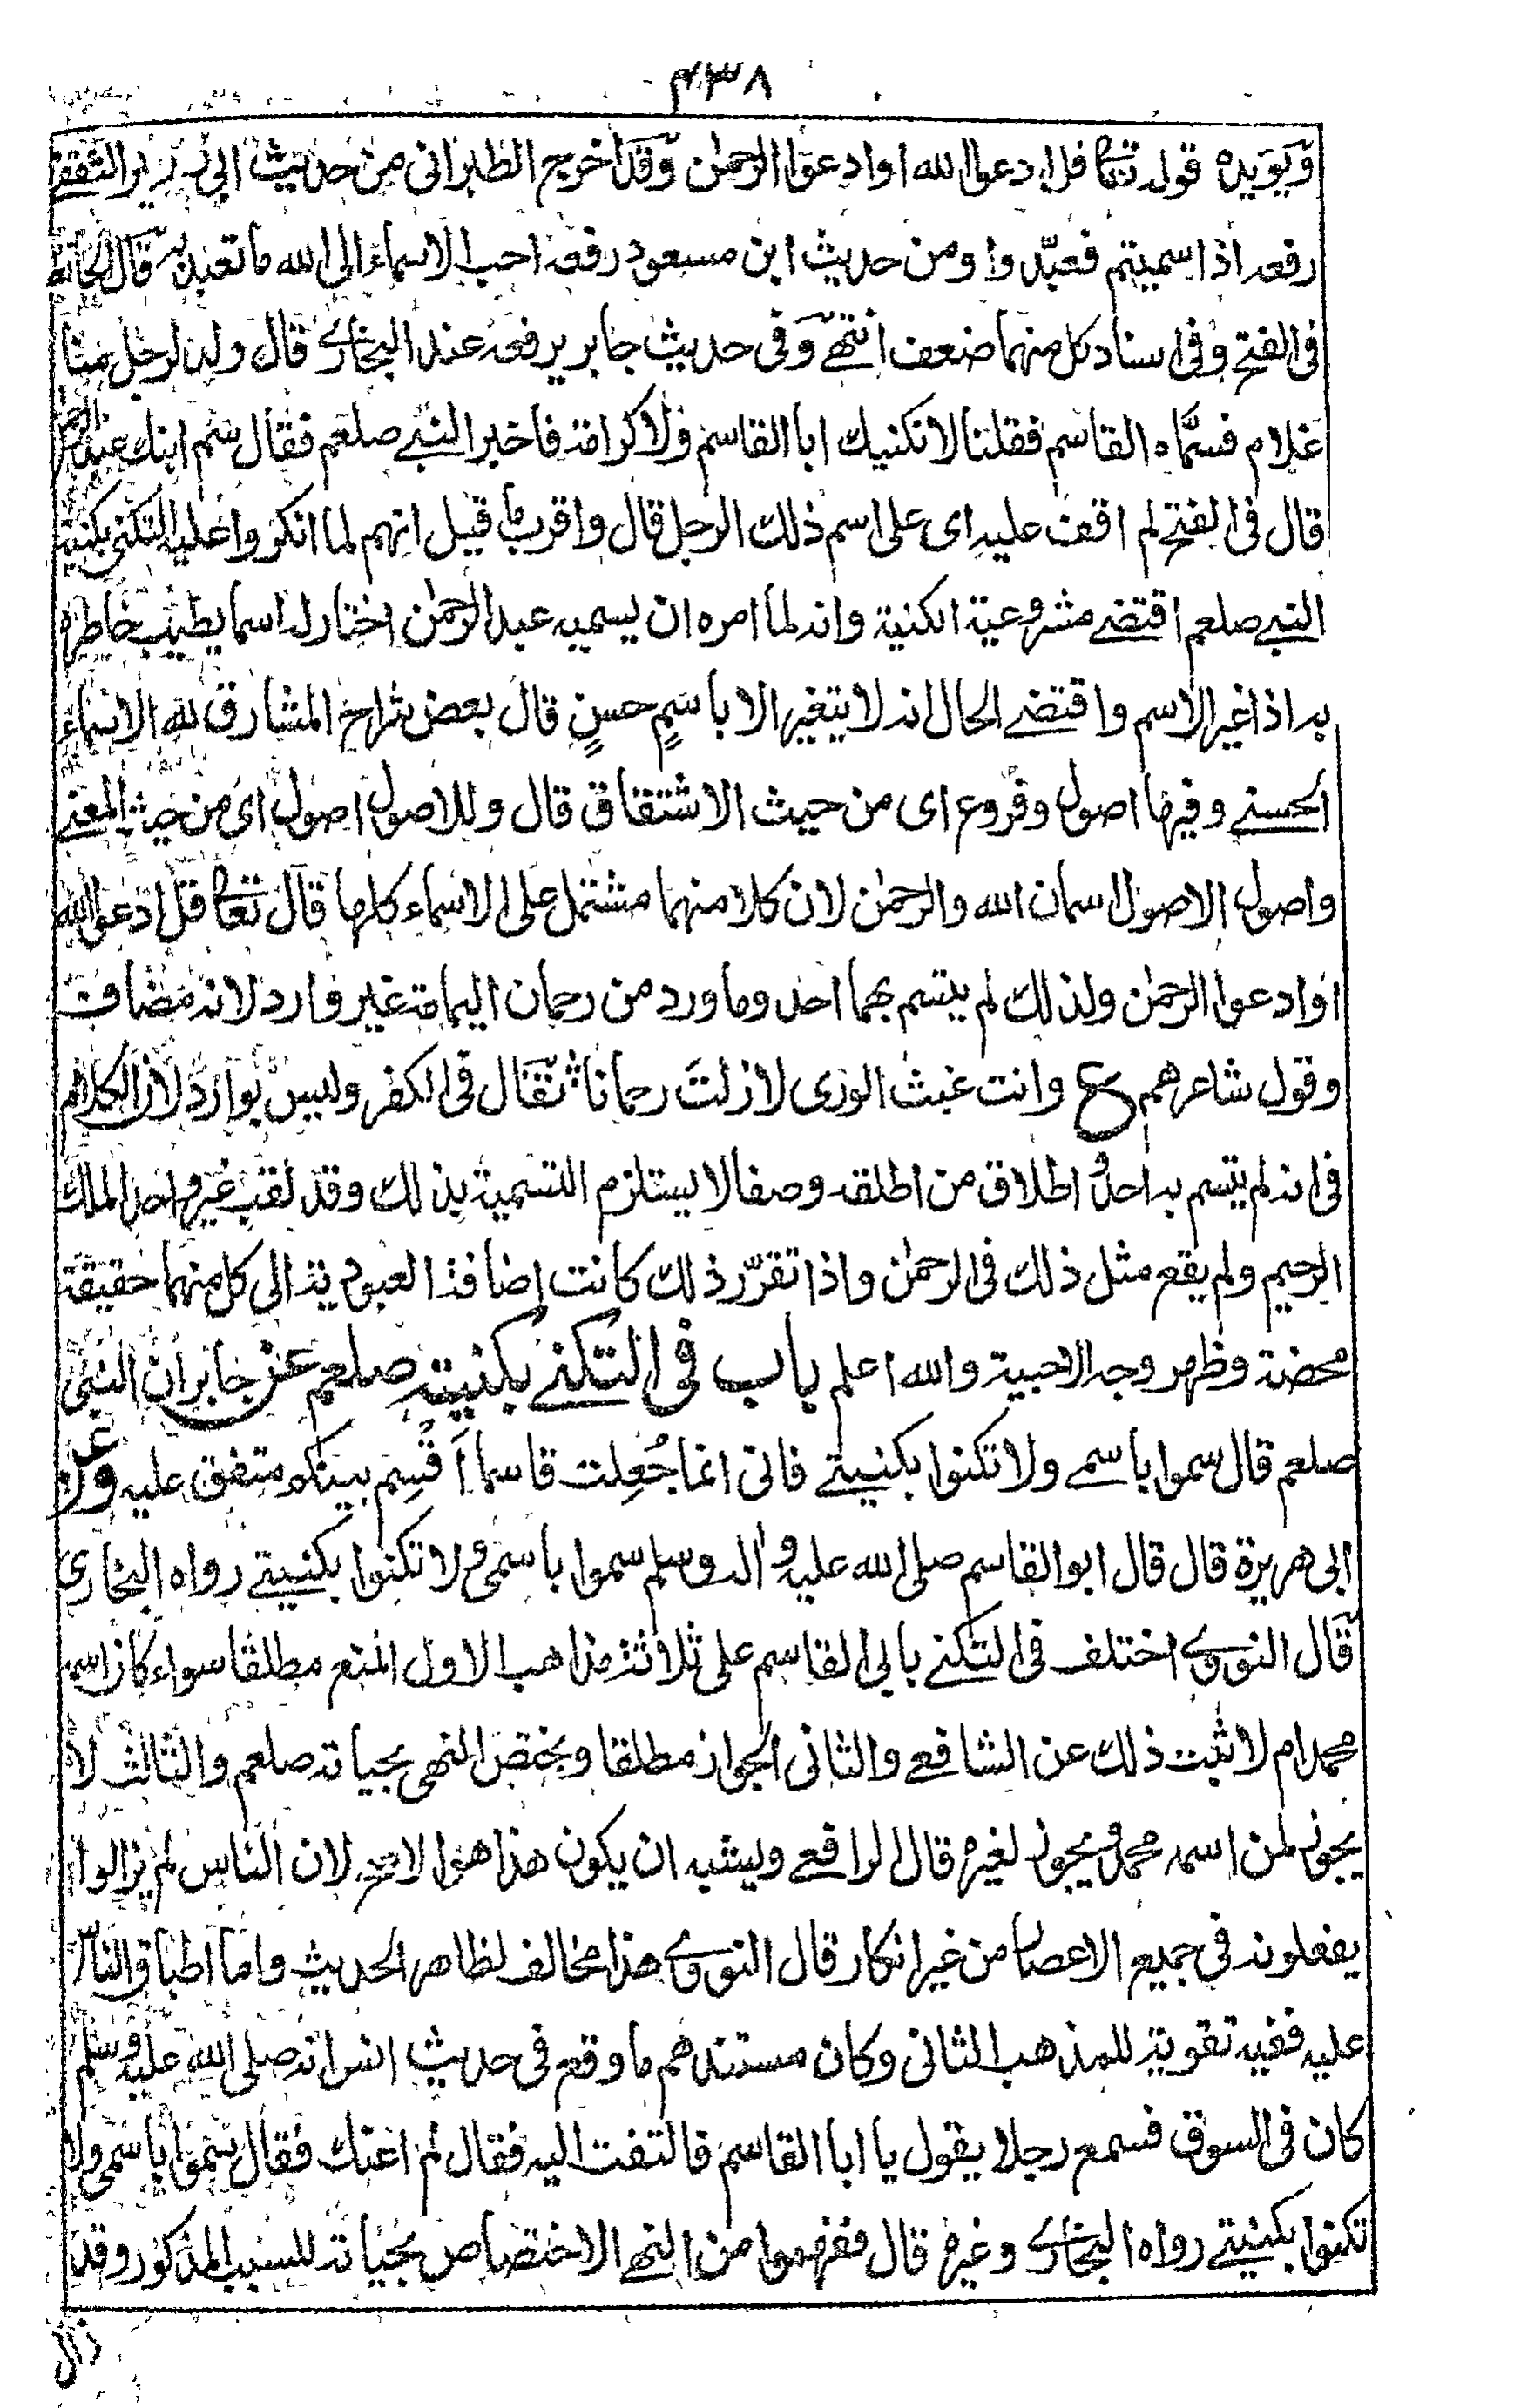 ٤٣٨
ويؤيده قوله تعالى قل ادعوا الله او ادعوا الرحمٰن وقد اخرج الطبرانى من حديث ابى زهير الثقفى
رفعه اذا سميتم فعبّدوا ومن حديث ابن مسعود رفعه احب الاسماء الى الله ما تعبد به قال الحافظ
فى الفتح وفى اسناد كل منهما ضعف انتهى وفى حديث جابر يرفعه عند البخارى قال ولد لرجل منا
غلام فسمّاه القاسم فقلنا لا نكنيك ابا القاسم ولا كرامة فاخبر النبى صلعم فقال سم ابنك عبد الرحمن
قال فى الفتح لم اقف عليه اى على اسم ذلك الرجل قال واقرب ما قيل انهم لما انكروا عليه التكنى بكنية
النبى صلعم اقتضى مشروعية الكنية وانه لما امره ان يسميه عبد الرحمٰن اختار له اسما يطيب خاطره
به اذا غير الاسم واقتضى الحال انه لا يتغير الا باسمٍ حسنٍ قال بعض شراح المشارق لله الاسماء
الحسنى وفيها اصول وفروع اى من حيث الاشتقاق قال وللاصول اصول اى من حيث المعنى
واصول الاصول اسمان الله والرحمٰن لان كلا منهما مشتمل على الاسماء كلها قال تعالى قل ادعوا الله
او ادعوا الرحمٰن ولذلك لم يتسم بهما احد وما ورد من رحمان اليمامة غير وارد لانه مضاف
وقول شاعرهم ع وانت غيث الورى لا زلت رحمانا تقال فى الكفر وليس بوارد لان الكلام
فى انه لم يتسم به احدٌ واطلاق من اطلقه وصفا لا يستلزم التسمية بذلك وقد لقب غير واحد الملك
الرحيم ولم يقع مثل ذلك فى الرحمٰن واذا تقرّر ذلك كانت اضافة العبودية الى كل منهما حقيقة
محضة وظهر وجه الاحبية والله اعلم باب فى التكنى بكنيته صلعم عن جابر ان النبى
صلعم قال سموا باسمى ولا تكنوا بكنيتى فانى انما جُعِلت قاسما اَقسِم بينكم متفق عليه وعن
ابى هريرة قال قال ابو القاسم صلى الله عليه واله وسلم سموا باسمى ولا تكنوا بكنيتى رواه البخارى
قال النووى اختلف فى التكنى بابى القاسم على ثلاثة مذاهب الاول المنع مطلقا سواء كان اسمه
محمدا ام لا ثبت ذلك عن الشافعى والثانى الجواز مطلقا ويختص النهى بحياته صلعم والثالث لا
يجوز لمن اسمه محمد ويجوز لغيره قال الرافعى ويشبه ان يكون هذا هو الاصح لان الناس لم يزالوا
يفعلونه فى جميع الاعصار من غير انكار قال النووى هذا مخالف لظاهر الحديث واما اطباق الناس
عليه ففيه تقوية للمذهب الثانى وكان مستندهم ما وقع فى حديث انس انه صلى الله عليه وسلم
كان فى السوق فسمع رجلا يقول يا ابا القاسم فالتفت اليه فقال لم اعنك فقال سموا باسمى ولا
تكنوا بكنيتى رواه البخارى وغيره قال ففهموا من النهى الاختصاص بحياته للسبب المذكور وقد
زال